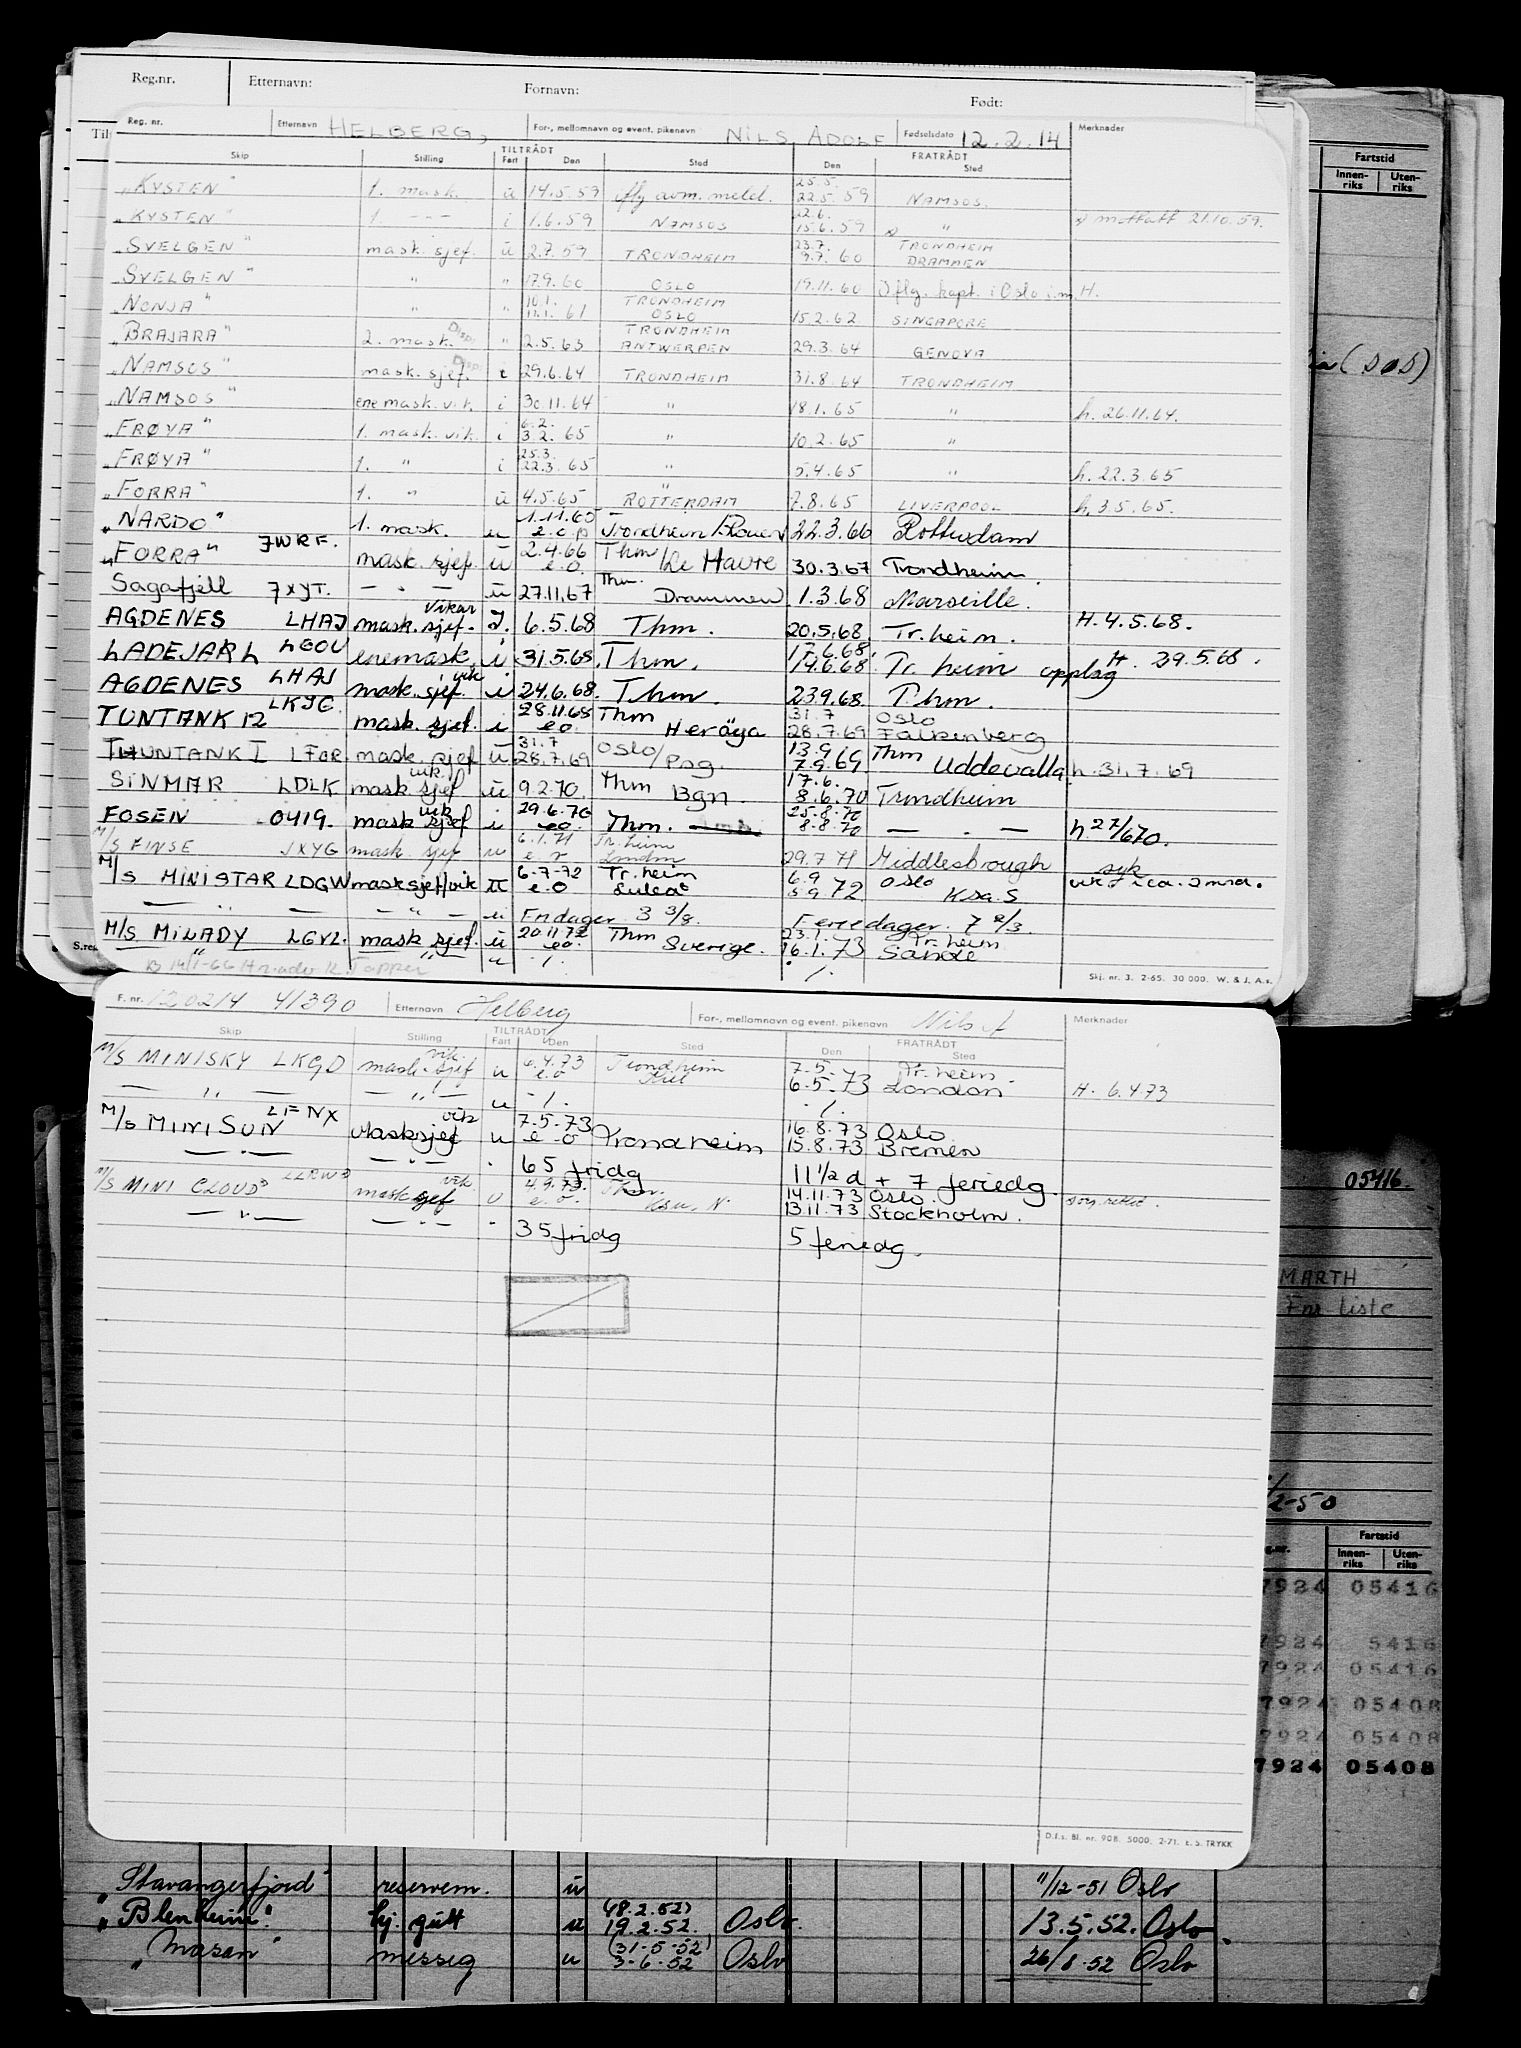 Reg.nr. Etternavn: Fornavn: Født:
Reg. nr. Etternavn HELBERG, For-, mellomnavn og event. pikenavn NILS ADOLF Fødselsdato 12.2.14 Merknader
TILTRÅDT FRATRÅDT
Skip Stilling Fart Den Sted Den Sted
25.5.
"KYSTEN" 1. mask. u 14.5.59 iflg avm. meld. 22.5.59 NAMSOS.
22.6.
"KYSTEN" 1. -"- i 1.6.59 NAMSOS 15.6.59 " mottatt 21.10.59.
23.7. TRONDHEIM
"SVELGEN" mask. sjef. ü 2.7.59 TRONDHEIM 9.7.60 DRAMMEN
"SVELGEN" " " 17.9.60 OSLO 19.11.60 Iflg. kapt. i Oslo i.m.H.
10.1. TRONDHEIM
"NONJA" " " 11.1.61 OSLO 15.2.62 SINGAPORE
Disp. TRONDHEIM
"BRAJARA" 2. mask. " 2.5.63 ANTWERPEN 29.3.64 GENOVA
Disp.
"NAMSOS" mask. sjef. i 29.6.64 TRONDHEIM 31.8.64 TRONDHEIM
"NAMSOS" ene mask. vik. i 30.11.64 " 18.1.65 " h. 26.11.64.
6.2.
"FRØYA" 1. mask. vik. i 3.2.65 " 10.2.65 "
25.3.
"FRØYA" 1. " i 22.3.65 " 5.4.65 " h. 22.3.65
"FORRA" 1. " ü 4.5.65 ROTTERDAM 7.8.65 LIVERPOOL h. 3.5.65.
1.11.65
"NARDO" 1. mask. u Trondheim/Rouen 22.3.66 Rotterdam
2.4.66
"FORRA" JWRF. mask. sjef. ü e.o. Thm/Le Havre 30.3.67 Trondheim.
Thm.
Sagafjell JXYT. — " — ü 27.11.67 Drammen 1.3.68 Marseille.
vikar
AGDENES LHAJ mask. sjef. I. 6.5.68 Thm. 20.5.68. Tr.heim. H. 4.5.68.
17.6.68.
LADEJARL LEOU enemask. i 31.5.68. Thm. 14.6.68. Tr. heim opplag H. 29.5.68.
vik
AGDENES LHAJ mask. sjef. i 24.6.68. Thm. 23.9.68. Thm.
28.11.68 Thm 31.7 Oslo
TUNTANK 12 LKJE mask. sjef. i e.o. Herøya 28.7.69 Falkenberg
31.7 Oslo/ 13.9 Thm
TUNTANK I LFOR mask. sjef ü 28.7.69 Psg. 7.9.69 Uddevalla h. 31.7.69
vik. 17.6.
SINMAR LDLK mask sjef ü 9.2.70. Thm Bgn. 8.6.70 Trondheim
29.6.70 25.8.70
FOSEN 0419. mask sjef vik i e.o. Thm. 8.8.70 — . — h 27/6 70.
6.1.71 Tr.heim
M/S FINSE JXYG mask. sjef u London 29.7.71 Middlesbrough syk
6-7-72 Tr.heim 6.9 Oslo
M/S MINISTAR LDGW masksjef/vik u e.o Luleå 5.9 72 Ksa. S vik. i ca. 2 mnd.
— " — — " — u Fridager 3 3/8. Feriedager. 7 2/3.
20.11.72 23.1. Tr.heim
M/S MILADY LGVZ. mask sjef. ü e.o. Thm Sverige. 16.1.73 Sande
" " u -/. -/.
S.reg
Skj. nr. 3. 2-65. 30 000. W. & J. A.s.
F. nr. 120214 41390 Etternavn Helberg For-, mellomnavn og event. pikenavn Nils A Merknader
TILTRÅDT FRATRÅDT
Skip Stilling Fart Den Sted Den Sted
vik. 6.4.73 Trondheim 7.5. Tr.heim
M/S MINISKY LKGD mask. sjef u e.o Kiel 6.5.73 London H. 6.4.73
— " — — " — u -/. -/.
LFNX vik 7.5.73 16.8.73 Oslo
M/S MINI SUN Masksjef u e.o Trondheim 15.8.73 Bremen
— " — — " — " 65 fridg 11 1/2 d + 7 feriedg.
vik. 4.9.73. Thm. 14.11.73 Oslo.
M/S MINI CLOUD LLRW mask sjef u e.o. Ksu. N. 13.11.73 Stockholm.
— " — — " — " 35 fridg 5 feriedg.
D.f.s. Bl. nr. 908. 5000. 2-71. E. S. TRYKK
Fartstid
Innenriks Utenriks
(SOS)
05416.
MARTH
Fnr liste
2-50
Fartstid
Innenriks Utenriks
7924 05416
7924 5416
7924 05416
7924 05408
7924 05408
7924 05408
"Stavangerfjord" reservem. ü 11/12-51 Oslo
(18.2.52)
"Blenheim". hj. gutt u 19.2.52. Oslo. 13.5.52. Oslo.
(31-5-52)
"Masan" messeg u 3-6-52 Oslo 26/8.52 Oslo